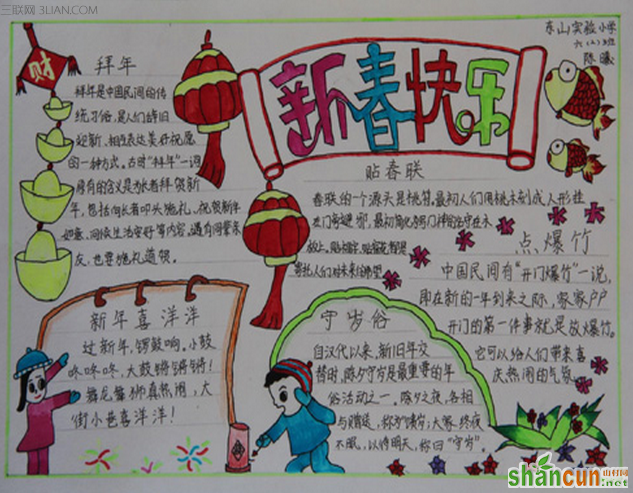 三联网 3LIAN.COM
东山实验小学
六(2)班
陈曦
财
新春快乐
拜年
拜年是中国民间的传
统习俗,是人们辞旧
迎新、相互表达美好祝愿
的一种方式。古时"拜年"一词
原有的含义是为长者拜贺新
年,包括向长者叩头施礼、祝贺新年
如意、问候生活安好等内容。遇有同辈亲
友,也要施礼道贺。
贴春联
春联的一个源头是桃符。最初人们用桃木刻成人形挂
在门旁避邪,
点爆竹
中国民间有"开门爆竹"一说,
即在新的一年到来之际,家家户户
开门的第一件事就是放爆竹。
它可以给人们带来喜
庆热闹的气氛。
新年喜洋洋
过新年,锣鼓响。小鼓
咚咚咚,大鼓锵锵锵!
舞龙舞狮真热闹,大
街小巷喜洋洋!
守岁俗
自汉代以来,新旧年交
替时,除夕守岁是最重要的年
俗活动之一。除夕之夜,各相
与赠送,称为"馈岁";大家终夜
不眠,以待明天,称曰"守岁"。
shancun
山村网
.net